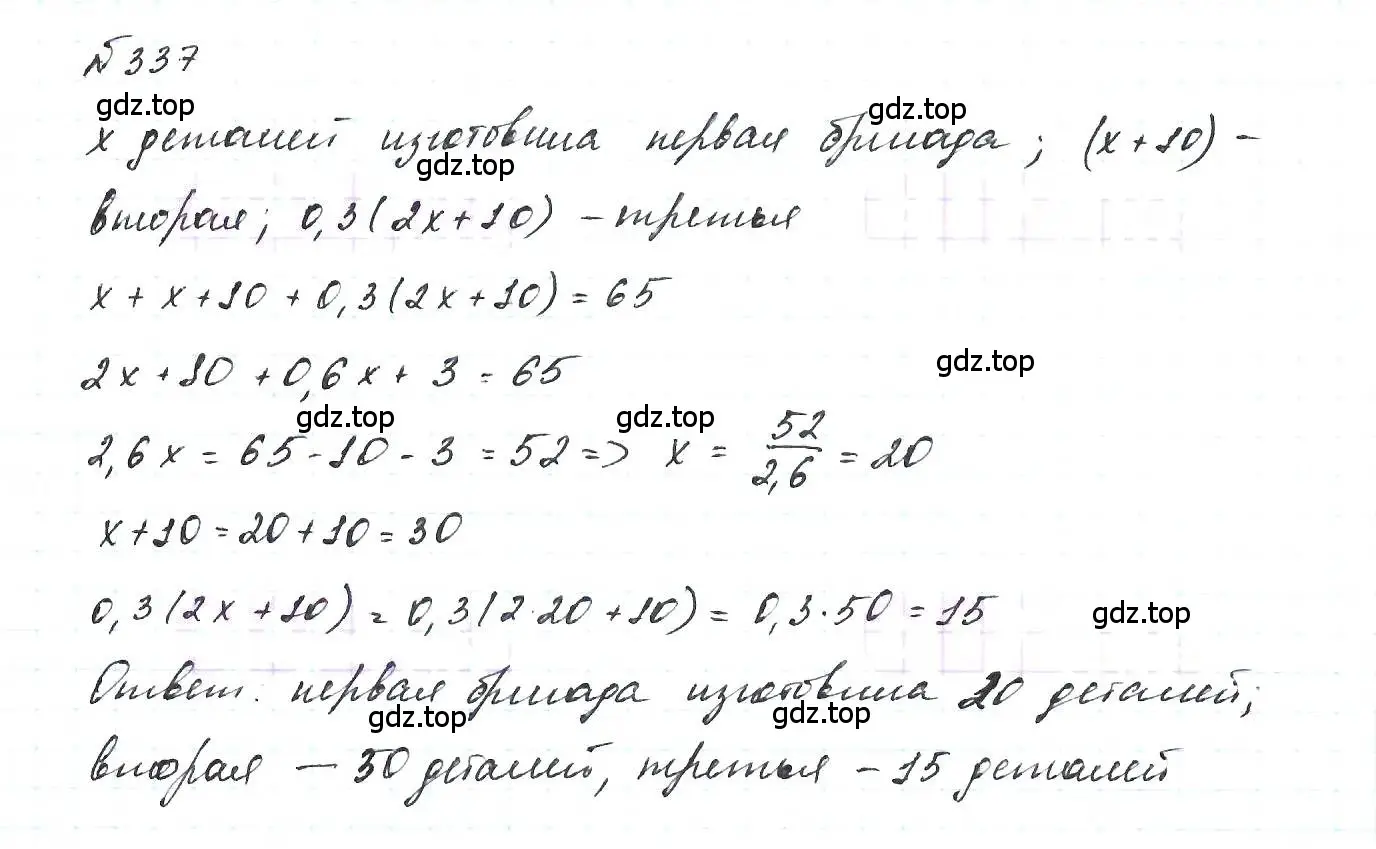 № 337
gdz.top gdz.top
x деталей изготовила первая бригада; (x + 10) –
gdz.top
вторая; 0,3(2x + 10) – третья
x + x + 10 + 0,3(2x + 10) = 65
gdz.top
2x + 10 + 0,6x + 3 = 65
gdz.top gdz.top
2,6x = 65 - 10 - 3 = 52 => x = 52/2,6 = 20
x + 10 = 20 + 10 = 30
0,3(2x + 10) = 0,3(2·20 + 10) = 0,3·50 = 15 gdz.top
Ответ: первая бригада изготовила 20 деталей;
gdz.top gdz.top
вторая — 30 деталей, третья – 15 деталей